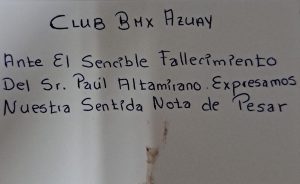 Club BMX Azuay
Ante El Sencible Fallecimiento
Del Sr. Paúl Altamirano. Expresamos
Nuestra Sentida Nota de Pesar